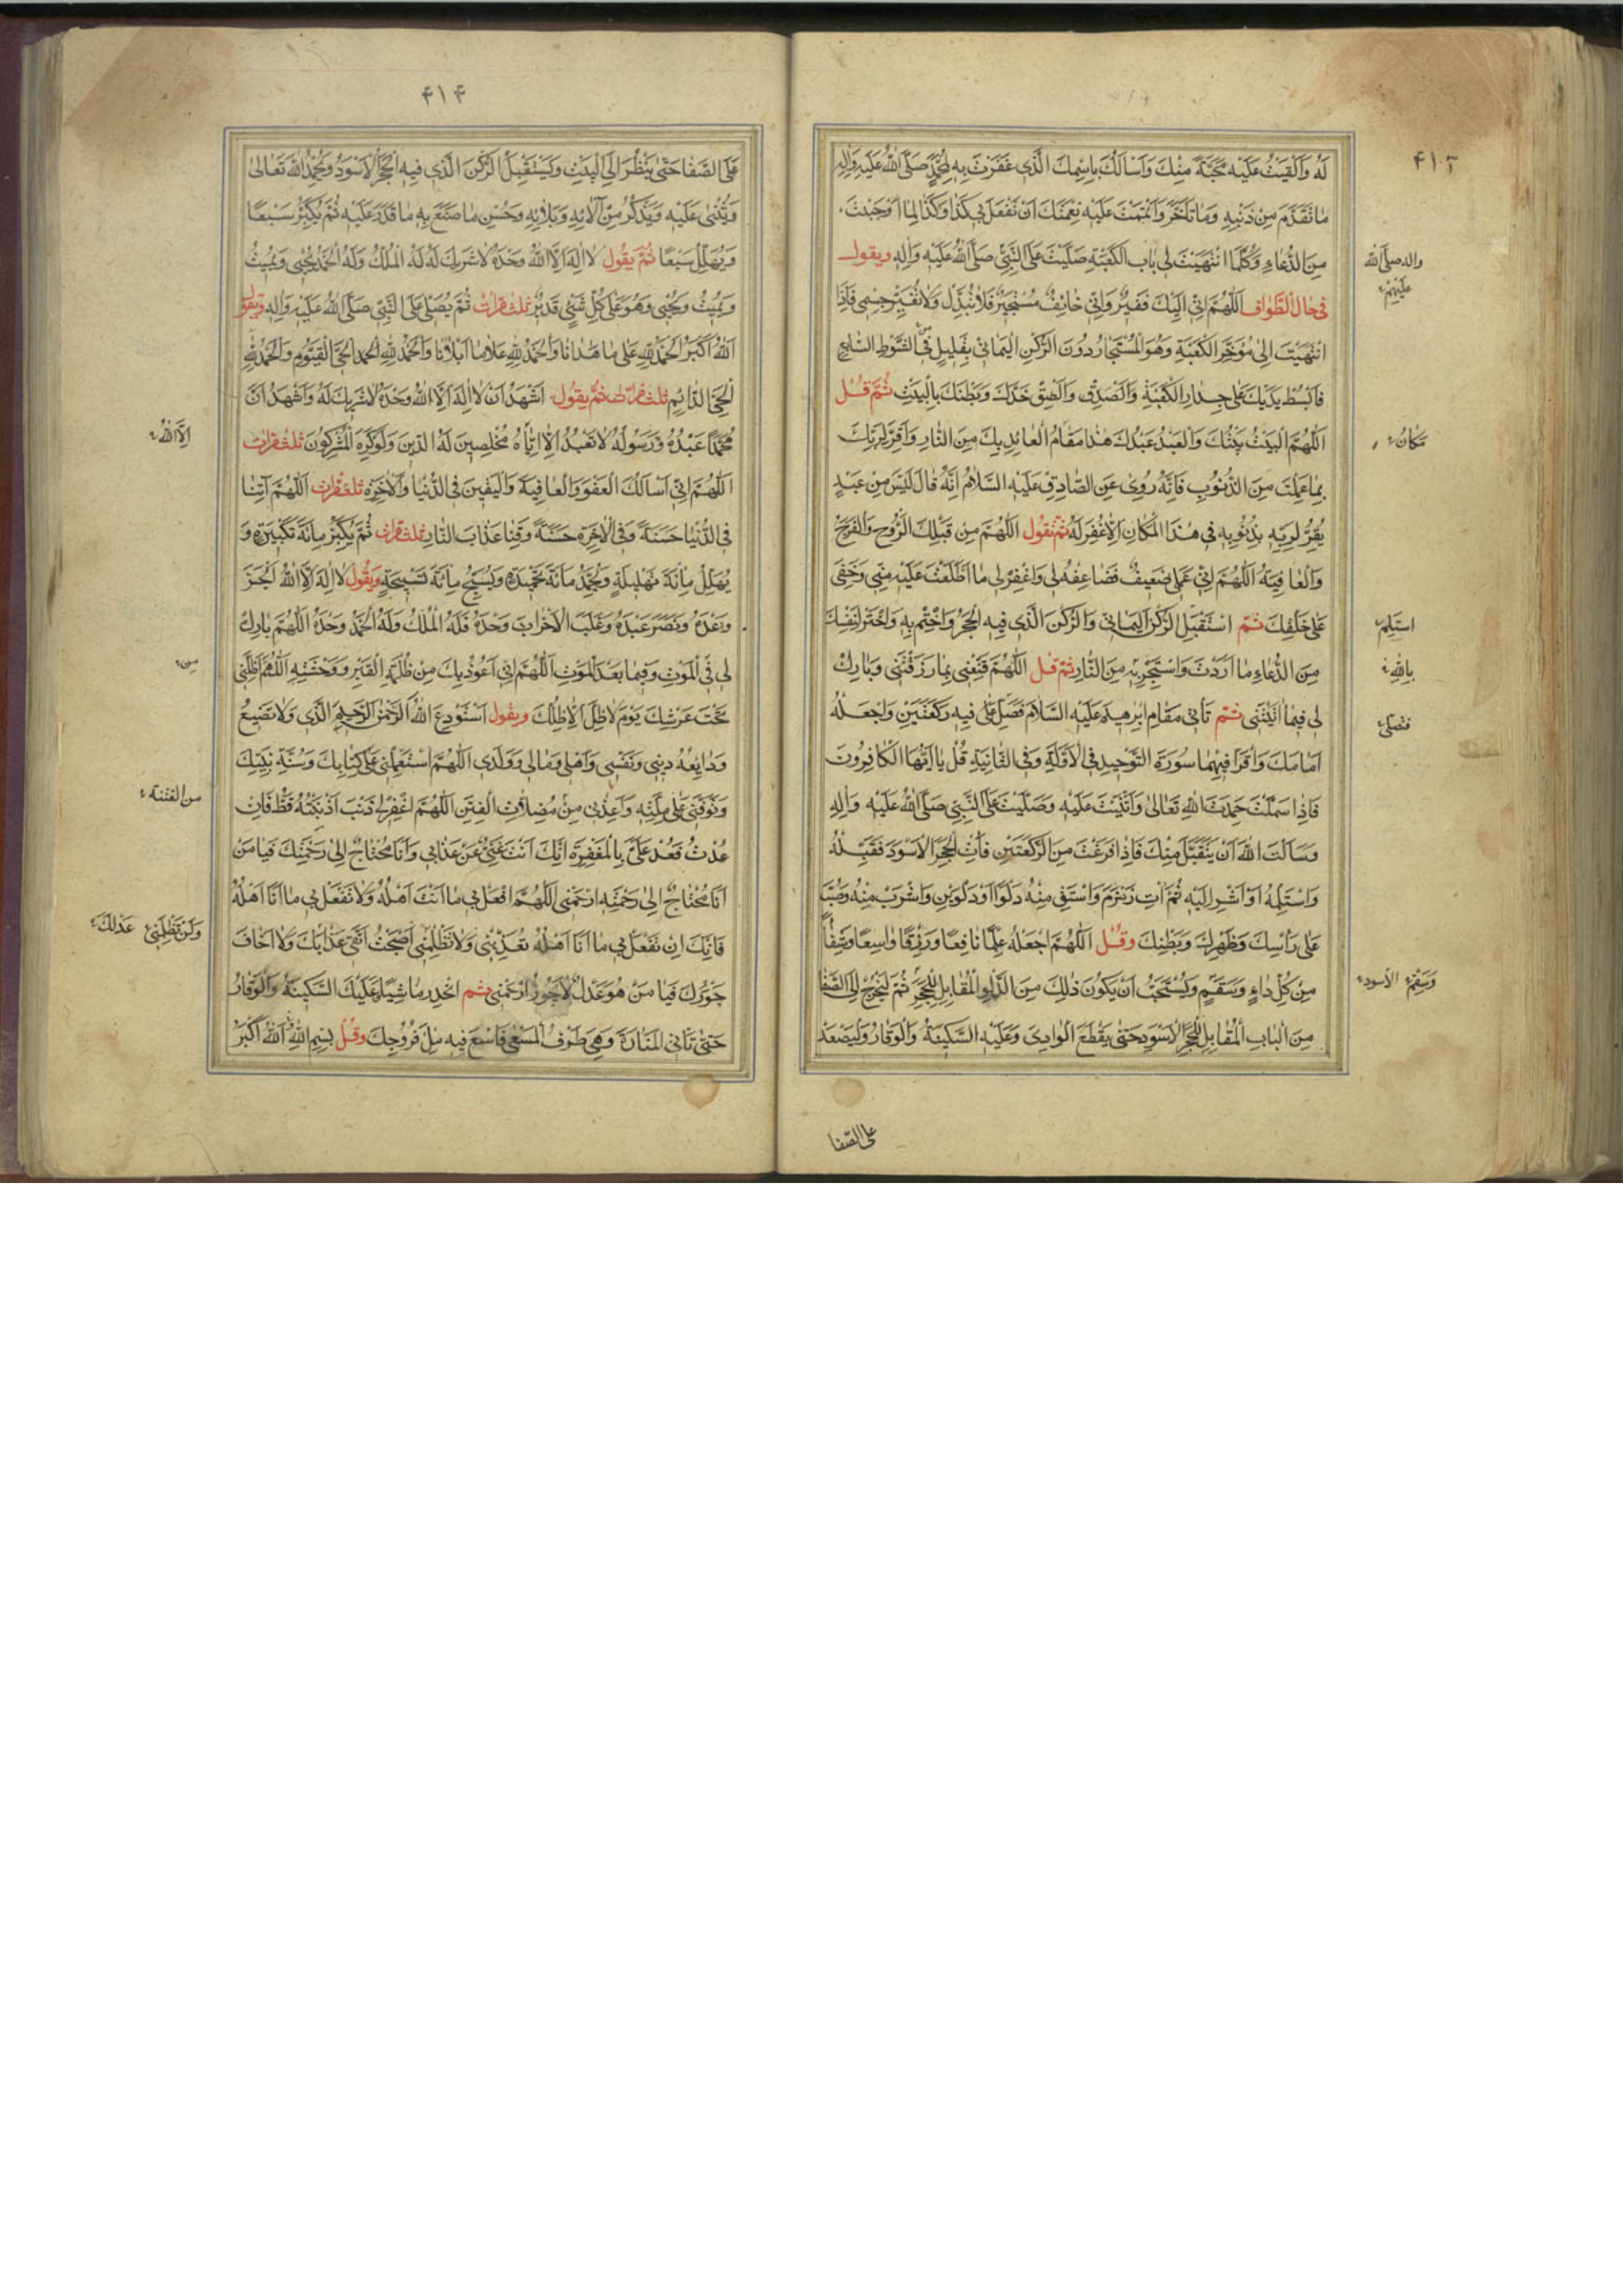 ۴۱۳
لَهُ وَاَلْقَيْتَ عَلَيْهِ مَحَبَّةً مِنْكَ وَاَسْاَلُكَ بِاسْمِكَ الَّذى غَفَرْتَ بِهِ لِمُحَمَّدٍ صَلَّى اللهُ عَلَيْهِ وَاٰلِهِ
مٰا تَقَدَّمَ مِنْ ذَنْبِهِ وَمٰا تَاَخَّرَ وَاَتْمَمْتَ عَلَيْهِ نِعْمَتَكَ اَنْ تَفْعَلَ بى كَذٰا وَكَذٰا لِمٰا اَحْبَبْتَ
مِنَ الدُّعٰاءِ وَكُلَّمَا انْتَهَيْتَ اِلىٰ بٰابِ الْكَعْبَةِ صَلَّيْتَ عَلَى النَّبِىِّ صَلَّى اللهُ عَلَيْهِ وَاٰلِهِ ويقول
فى حٰال الطَّوٰاف اَللّٰهُمَّ اِنّى اِلَيْكَ فَقيرٌ وَاِنّى خٰائِفٌ مُسْتَجيرٌ فَلٰا تُبَدِّلْ وَلٰا تُغَيِّرْ جِسْمى فَاِذَا
انْتَهَيْتَ اِلىٰ مُؤَخَّرِ الْكَعْبَةِ وَهُوَ الْمُسْتَجٰارُ دُونَ الرُّكْنِ الْيَمٰانى بِقَليلٍ فِى الشَّوْطِ السّٰابِعِ
فَابْسُطْ يَدَيْكَ عَلىٰ جِدٰارِ الْكَعْبَةِ وَالْصَقْ خَدَّكَ وَبَطْنَكَ بِالْبَيْتِ ثُمَّ قُلْ
اَللّٰهُمَّ الْبَيْتُ بَيْتُكَ وَالْعَبْدُ عَبْدُكَ هٰذٰا مَقٰامُ الْعٰائِذِ بِكَ مِنَ النّٰارِ وَاَقِرَّ لِرَبِّكَ
بِمٰا عَمِلْتَ مِنَ الذُّنُوبِ فَاِنَّهُ رُوِىَ عَنِ الصّٰادِقِ عَلَيْهِ السَّلٰامُ اِنَّهُ قٰالَ لَيْسَ مِنْ عَبْدٍ
يُقِرُّ لِرَبِّهِ بِذُنُوبِهِ فى هٰذَا الْمَكٰانِ اِلّٰا غُفِرَ لَهُ ثُمَّ تَقُول اَللّٰهُمَّ مِنْ قِبَلِكَ الرَّوْحُ وَالْفَرَجُ
وَالْعٰافِيَةُ اَللّٰهُمَّ اِنَّ عَمَلى ضَعيفٌ فَضٰاعِفْهُ لى وَاغْفِرْ لى مَا اطَّلَعْتَ عَلَيْهِ مِنّى وَخَفِىَ
عَلىٰ خَلْقِكَ ثمّ اسْتَقْبِلِ الرُّكْنَ الْيَمٰانى وَالرُّكْنَ الَّذى فيهِ الْحَجَرُ وَاخْتِمْ بِهِ وَاخْتَرْ لِنَفْسِكَ
مِنَ الدُّعٰاءِ مٰا اَرَدْتَ وَاسْتَجِرْ بِهِ مِنَ النّٰارِ ثمّ قل اَللّٰهُمَّ قَنِّعْنى بِمٰا رَزَقْتَنى وَبٰارِكْ
لى فيمٰا اٰتَيْتَنى ثمّ تَاْتى مَقٰامَ اِبْرٰهيمَ عَلَيْهِ السَّلٰامُ فَصَلِّ فيهِ رَكْعَتَيْنِ وَاجْعَلْهُ
اَمٰامَكَ وَاقْرَأْ فيهِمٰا سُورَةَ التَّوْحيدِ فِى الْاُولىٰ وَفِى الثّٰانِيَةِ قُلْ يٰا اَيُّهَا الْكٰافِرُونَ
فَاِذٰا سَلَّمْتَ حَمِدْتَ اللهَ تَعٰالىٰ وَاَثْنَيْتَ عَلَيْهِ وَصَلَّيْتَ عَلَى النَّبِىِّ صَلَّى اللهُ عَلَيْهِ وَاٰلِهِ
وَسَاَلْتَ اللهَ اَنْ يَتَقَبَّلَ مِنْكَ فَاِذٰا فَرَغْتَ مِنَ الرَّكْعَتَيْنِ فَأْتِ الْحَجَرَ الْاَسْوَدَ فَقَبِّلْهُ
وَاسْتَلِمْهُ اَوْ اَشِرْ اِلَيْهِ ثُمَّ ائْتِ زَمْزَمَ وَاسْتَقِ مِنْهُ دَلْوًا اَوْ دَلْوَيْنِ وَاشْرَبْ مِنْهُ وَصُبَّ
عَلىٰ رَأْسِكَ وَظَهْرِكَ وَبَطْنِكَ وقُلْ اَللّٰهُمَّ اجْعَلْهُ عِلْمًا نٰافِعًا وَرِزْقًا وٰاسِعًا وَشِفٰاءً
مِنْ كُلِّ دٰاءٍ وَسَقَمٍ وَيُسْتَحَبُّ اَنْ يَكُونَ ذٰلِكَ مِنَ الدَّلْوِ الْمُقٰابِلِ لِلْحَجَرِ ثُمَّ لْيَخْرُجْ اِلَى الصَّفٰا
مِنَ الْبٰابِ الْمُقٰابِلِ لِلْحَجَرِ الْاَسْوَدِ حَتّٰى يَقْطَعَ الْوٰادِىَ وَعَلَيْهِ السَّكينَةُ وَالْوَقٰارُ وَلْيَصْعَدْ
واله صلى الله
عليهم
مكان
استلم
بالله
فتصلى
وسقم الاسود
على الصفا
۴۱۴
عَلَى الصَّفٰا حَتّٰى يَنْظُرَ اِلَى الْبَيْتِ وَيَسْتَقْبِلَ الرُّكْنَ الَّذى فيهِ الْحَجَرُ الْاَسْوَدُ وَيَحْمَدُ اللهَ تَعٰالىٰ
وَيُثْنى عَلَيْهِ وَيَذْكُرُ مِنْ اٰلٰائِهِ وَبَلٰائِهِ وَحُسْنِ مٰا صَنَعَ بِهِ مٰا قَدَرَ عَلَيْهِ ثُمَّ يُكَبِّرُ سَبْعًا
وَيُهَلِّلُ سَبْعًا ثُمَّ يَقُول لٰا اِلٰهَ اِلَّا اللهُ وَحْدَهُ لٰا شَريكَ لَهُ لَهُ الْمُلْكُ وَلَهُ الْحَمْدُ يُحْيى وَيُميتُ
وَيُميتُ وَيُحْيى وَهُوَ عَلىٰ كُلِّ شَىْءٍ قَديرٌ ثلث مرات ثُمَّ يُصَلّى عَلَى النَّبِىِّ صَلَّى اللهُ عَلَيْهِ وَاٰلِهِ ويقول
اَللهُ اَكْبَرُ الْحَمْدُ لِلّٰهِ عَلىٰ مٰا هَدٰانٰا وَالْحَمْدُ لِلّٰهِ عَلىٰ مٰا اَبْلٰانٰا وَالْحَمْدُ لِلّٰهِ الْحَىِّ الْقَيُّومِ وَالْحَمْدُ لِلّٰهِ
الْحَىِّ الدّٰائِمِ ثلث مرات ثمّ يقول اَشْهَدُ اَنْ لٰا اِلٰهَ اِلَّا اللهُ وَحْدَهُ لٰا شَريكَ لَهُ وَاَشْهَدُ اَنَّ
مُحَمَّدًا عَبْدُهُ وَرَسُولُهُ لٰا نَعْبُدُ اِلّٰا اِيّٰاهُ مُخْلِصينَ لَهُ الدّينَ وَلَوْ كَرِهَ الْمُشْرِكُونَ ثلث مرات
اَللّٰهُمَّ اِنّى اَسْاَلُكَ الْعَفْوَ وَالْعٰافِيَةَ وَالْيَقينَ فِى الدُّنْيٰا وَالْاٰخِرَةِ ثلث مرات اَللّٰهُمَّ اٰتِنٰا
فِى الدُّنْيٰا حَسَنَةً وَفِى الْاٰخِرَةِ حَسَنَةً وَقِنٰا عَذٰابَ النّٰارِ ثلث مرات ثُمَّ يُكَبِّرُ مِائَةَ تَكْبيرَةٍ وَ
يُهَلِّلُ مِائَةَ تَهْليلَةٍ وَيُحَمِّدُ مِائَةَ تَحْميدَةٍ وَيُسَبِّحُ مِائَةَ تَسْبيحَةٍ وَيَقُول لٰا اِلٰهَ اِلَّا اللهُ اَنْجَزَ
وَعْدَهُ وَنَصَرَ عَبْدَهُ وَغَلَبَ الْاَحْزٰابَ وَحْدَهُ فَلَهُ الْمُلْكُ وَلَهُ الْحَمْدُ وَحْدَهُ اَللّٰهُمَّ بٰارِكْ
لى فِى الْمَوْتِ وَفيمٰا بَعْدَ الْمَوْتِ اَللّٰهُمَّ اِنّى اَعُوذُ بِكَ مِنْ ظُلْمَةِ الْقَبْرِ وَوَحْشَتِهِ اَللّٰهُمَّ اَظِلَّنى
تَحْتَ عَرْشِكَ يَوْمَ لٰا ظِلَّ اِلّٰا ظِلُّكَ ويقول اَسْتَوْدِعُ اللهَ الرَّحْمٰنَ الرَّحيمَ الَّذى وَلٰا تَضيعُ
وَدٰايِعُهُ دينى وَنَفْسى وَاَهْلى وَمٰالى وَوَلَدى اَللّٰهُمَّ اسْتَعْمِلْنى عَلىٰ كِتٰابِكَ وَسُنَّةِ نَبِيِّكَ
وَتَوَفَّنى عَلىٰ مِلَّتِهِ وَاَعِذْنى مِنْ مُضِلّٰاتِ الْفِتَنِ اَللّٰهُمَّ اغْفِرْ لى كُلَّ ذَنْبٍ اَذْنَبْتُهُ قَطُّ فَاِنْ
عُدْتُ فَعُدْ عَلَىَّ بِالْمَغْفِرَةِ اِنَّكَ اَنْتَ غَنِىٌّ عَنْ عَذٰابى وَاَنَا مُحْتٰاجٌ اِلىٰ رَحْمَتِكَ فَيٰا مَنْ
اَنَا مُحْتٰاجٌ اِلىٰ رَحْمَتِهِ ارْحَمْنى اَللّٰهُمَّ افْعَلْ بى مٰا اَنْتَ اَهْلُهُ وَلٰا تَفْعَلْ بى مٰا اَنَا اَهْلُهُ
فَاِنَّكَ اِنْ تَفْعَلْ بى مٰا اَنَا اَهْلُهُ تُعَذِّبْنى وَلٰا تَظْلِمْنى اَصْبَحْتُ اَتَّقى عَذٰابَكَ وَلٰا اَخٰافُ
جَوْرَكَ فَيٰا مَنْ هُوَ عَدْلٌ لٰا يَجُورُ ارْحَمْنى ثم انْحَدِرْ مٰاشِيًا وَعَلَيْكَ السَّكينَةُ وَالْوَقٰارُ
حَتّٰى تَاْتِىَ الْمَنٰارَةَ وَهِىَ طَرَفُ الْمَسْعىٰ فَاسْعَ فيهِ مِلْءَ فُرُوجِكَ وقُلْ بِسْمِ اللهِ اَللهُ اَكْبَرُ
اِلَّا اللهُ
من
من الفتنة
وَلَنْ تَظْلِمَنى عَدْلَكَ